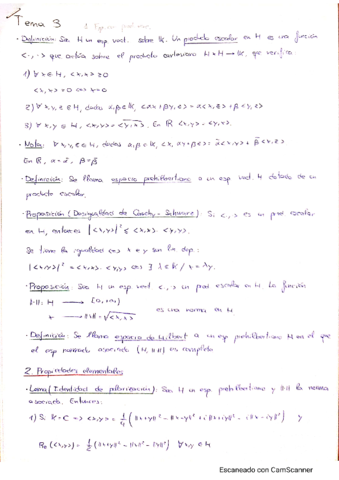 Tema 3
· Definición: Sea H un esp. vect. sobre IK. Un producto escalar en H es una función
<·,·> que actúa sobre el producto cartesiano H × H → IK, que verifica:
1) ∀ x ∈ H, <x,x> ≥ 0
<x,x> = 0 <=> x = 0
2) ∀ x,y,z ∈ H, dados α,β ∈ IK, <αx + βy, z> = α<x,z> + β<y,z>
3) ∀ x,y ∈ H, <x,y> = \overline{<y,x>}. En IR <x,y> = <y,x>.
· Nota: ∀ x,y,z ∈ H, dados α,β ∈ IK, <x, αy + βz> = \bar{α}<x,y> + \bar{β}<x,z>
En IR, α = \bar{α}, β = \bar{β}
· Definición: Se llama espacio prehilbertiano a un esp. vect. H dotado de un
producto escalar.
· Proposición (Desigualdad de Cauchy - Schwarz): Si <,> es un prod escalar
en H, entonces |<x,y>|² ≤ <x,x>·<y,y>
Se tiene la igualdad <=> x e y son lin. dep.:
|<x,y>|² = <x,x>·<y,y> <=> ∃ λ ∈ IK / x = λy.
· Proposición: Sea H un esp vect y <,> un prod escalar en H. La función
||·||: H → [0,+∞)
x → ||x|| = √<x,x>
es una norma en H
· Definición: Se llama espacio de Hilbert a un esp prehilbertiano H en el que
el esp normado asociado (H, ||·||) es completo
2. Propiedades elementales
· Lema (Identidad de polarización): Sea H un esp prehilbertiano y ||·|| la norma
asociada. Entonces:
1) Si IK = C => <x,y> = 1/4 (||x+y||² - ||x-y||² + i||x+iy||² - i||x-iy||²) y
Re(<x,y>) = 1/2 (||x+y||² - ||x||² - ||y||²) ∀ x,y ∈ H
Escaneado con CamScanner